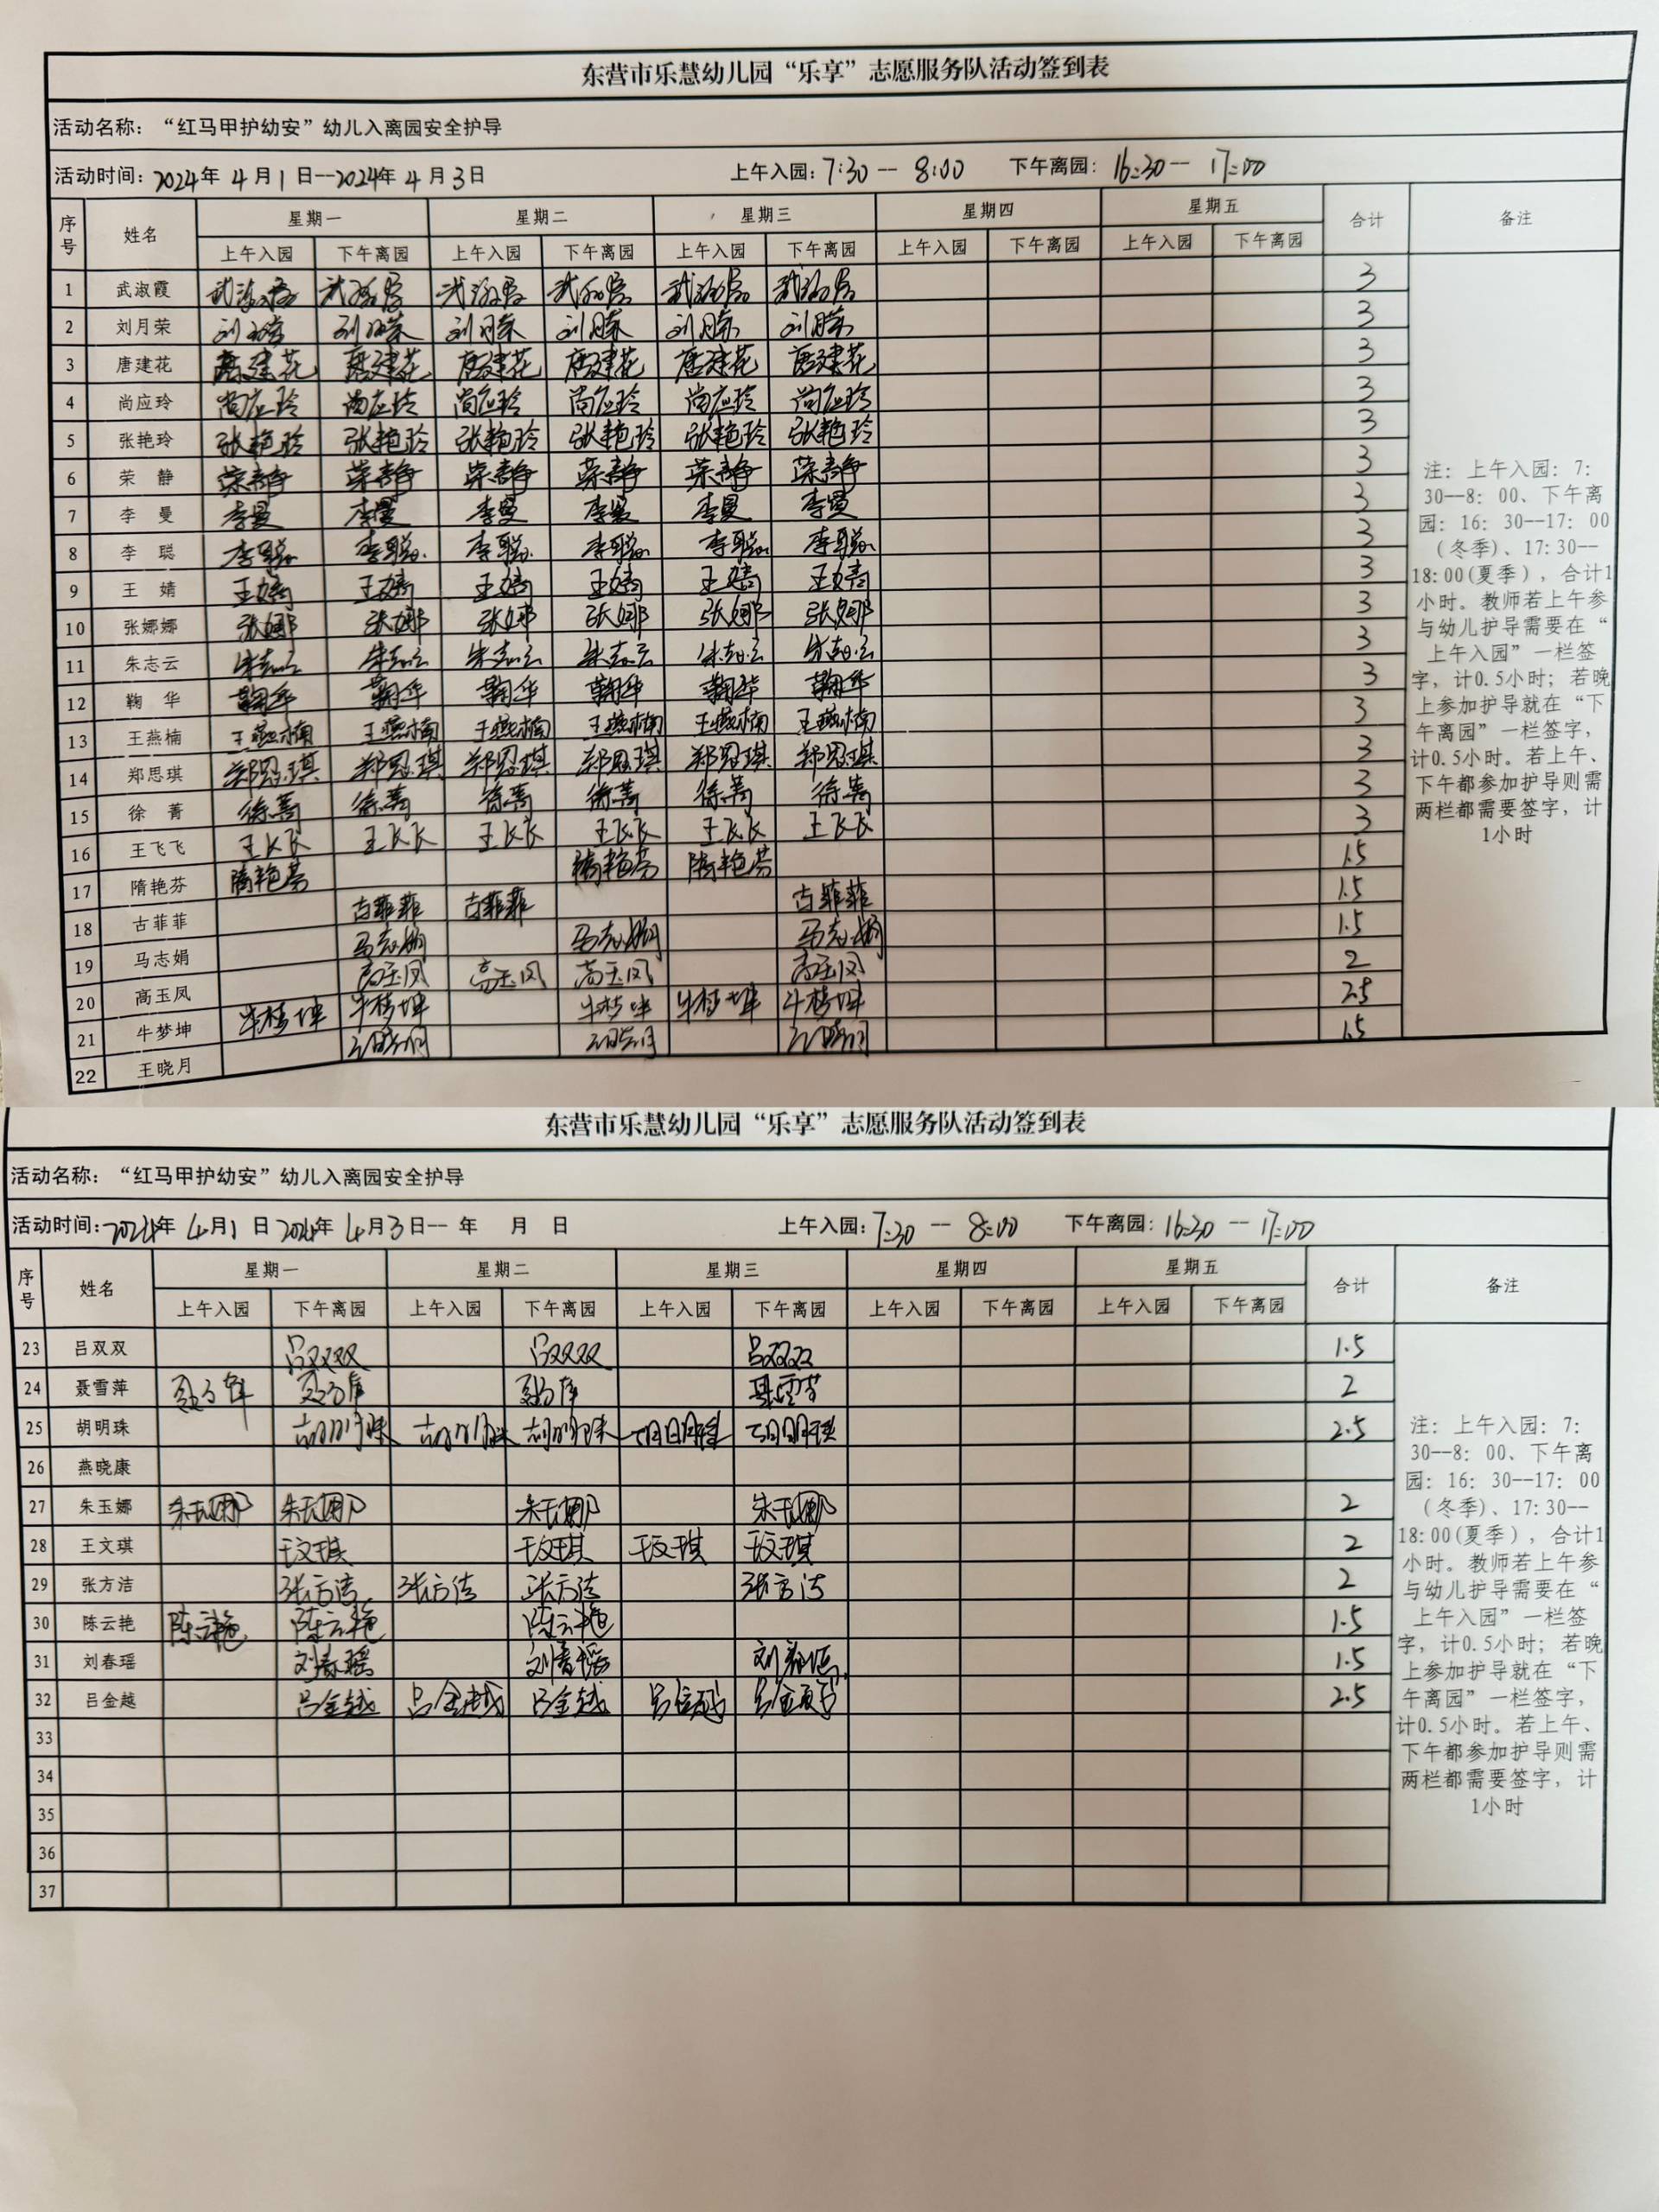 东营市乐慧幼儿园“乐享”志愿服务队活动签到表
活动名称：“红马甲护幼安”幼儿入离园安全护导
活动时间：2024年 4月1日--2024年 4月3日 上午入园：7:30--8:00 下午离园：16:30--17:00
序号 姓名 星期一 星期二 星期三 星期四 星期五 合计 备注
上午入园 下午离园 上午入园 下午离园 上午入园 下午离园 上午入园 下午离园 上午入园 下午离园
1 武淑霞 武淑霞 武淑霞 武淑霞 武淑霞 武淑霞 武淑霞 3
2 刘月荣 刘月荣 刘月荣 刘月荣 刘月荣 刘月荣 刘月荣 3
3 唐建花 唐建花 唐建花 唐建花 唐建花 唐建花 唐建花 3
4 尚应玲 尚应玲 尚应玲 尚应玲 尚应玲 尚应玲 尚应玲 3
5 张艳玲 张艳玲 张艳玲 张艳玲 张艳玲 张艳玲 张艳玲 3
6 荣 静 荣静 荣静 荣静 荣静 荣静 荣静 3
7 李 曼 李曼 李曼 李曼 李曼 李曼 李曼 3
8 李 聪 李聪 李聪 李聪 李聪 李聪 李聪 3
9 王 婧 王婧 王婧 王婧 王婧 王婧 王婧 3
10 张娜娜 张娜 张娜 张娜 张娜 张娜 张娜 3
11 朱志云 朱志云 朱志云 朱志云 朱志云 朱志云 朱志云 3
12 鞠 华 鞠华 鞠华 鞠华 鞠华 鞠华 鞠华 3
13 王燕楠 王燕楠 王燕楠 王燕楠 王燕楠 王燕楠 王燕楠 3
14 郑思琪 郑思琪 郑思琪 郑思琪 郑思琪 郑思琪 郑思琪 3
15 徐 菁 徐菁 徐菁 徐菁 徐菁 徐菁 徐菁 3
16 王飞飞 王飞飞 王飞飞 王飞飞 王飞飞 王飞飞 王飞飞 3
17 隋艳芬 隋艳芬 隋艳芬 隋艳芬 1.5
18 古菲菲 古菲菲 古菲菲 古菲菲 1.5
19 马志娟 马志娟 马志娟 马志娟 1.5
20 高玉凤 高玉凤 高玉凤 高玉凤 高玉凤 2
21 牛梦坤 牛梦坤 牛梦坤 牛梦坤 牛梦坤 牛梦坤 2.5
22 王晓月 王晓月 王晓月 王晓月 1.5
注：上午入园：7：
30--8：00、下午离
园：16：30--17：00
（冬季）、17:30--
18:00(夏季），合计1
小时。教师若上午参
与幼儿护导需要在“
上午入园”一栏签
字，计0.5小时；若晚
上参加护导就在“下
午离园”一栏签字，
计0.5小时。若上午、
下午都参加护导则需
两栏都需要签字，计
1小时
东营市乐慧幼儿园“乐享”志愿服务队活动签到表
活动名称：“红马甲护幼安”幼儿入离园安全护导
活动时间：2024年 4月1日 2024年 4月3日-- 年 月 日 上午入园：7:30--8:00 下午离园：16:30--17:00
序号 姓名 星期一 星期二 星期三 星期四 星期五 合计 备注
上午入园 下午离园 上午入园 下午离园 上午入园 下午离园 上午入园 下午离园 上午入园 下午离园
23 吕双双 吕双双 吕双双 吕双双 1.5
24 聂雪萍 聂雪萍 聂雪萍 聂雪萍 聂雪萍 2
25 胡明珠 胡明珠 胡明珠 胡明珠 胡明珠 胡明珠 2.5
26 燕晓康
27 朱玉娜 朱玉娜 朱玉娜 朱玉娜 朱玉娜 2
28 王文琪 王文琪 王文琪 王文琪 王文琪 2
29 张方洁 张方洁 张方洁 张方洁 张方洁 2
30 陈云艳 陈云艳 陈云艳 陈云艳 1.5
31 刘春瑶 刘春瑶 刘春瑶 刘春瑶 1.5
32 吕金越 吕金越 吕金越 吕金越 吕金越 吕金越 2.5
33
34
35
36
37
注：上午入园：7：
30--8：00、下午离
园：16：30--17：00
（冬季）、17:30--
18:00(夏季），合计1
小时。教师若上午参
与幼儿护导需要在“
上午入园”一栏签
字，计0.5小时；若晚
上参加护导就在“下
午离园”一栏签字，
计0.5小时。若上午、
下午都参加护导则需
两栏都需要签字，计
1小时